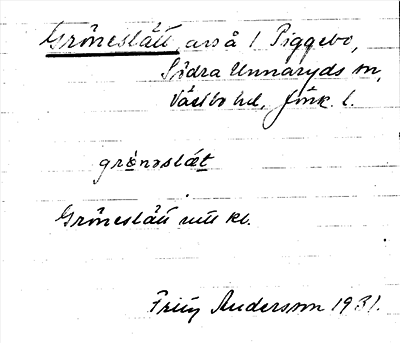 Gröneslätt, avs å 1 Piggebo,
Södra Unnaryds sn,
Västbo hd, Jönk. l.
grö̀nəslæt
Gröneslätt utt kl.
Andersson 1931.